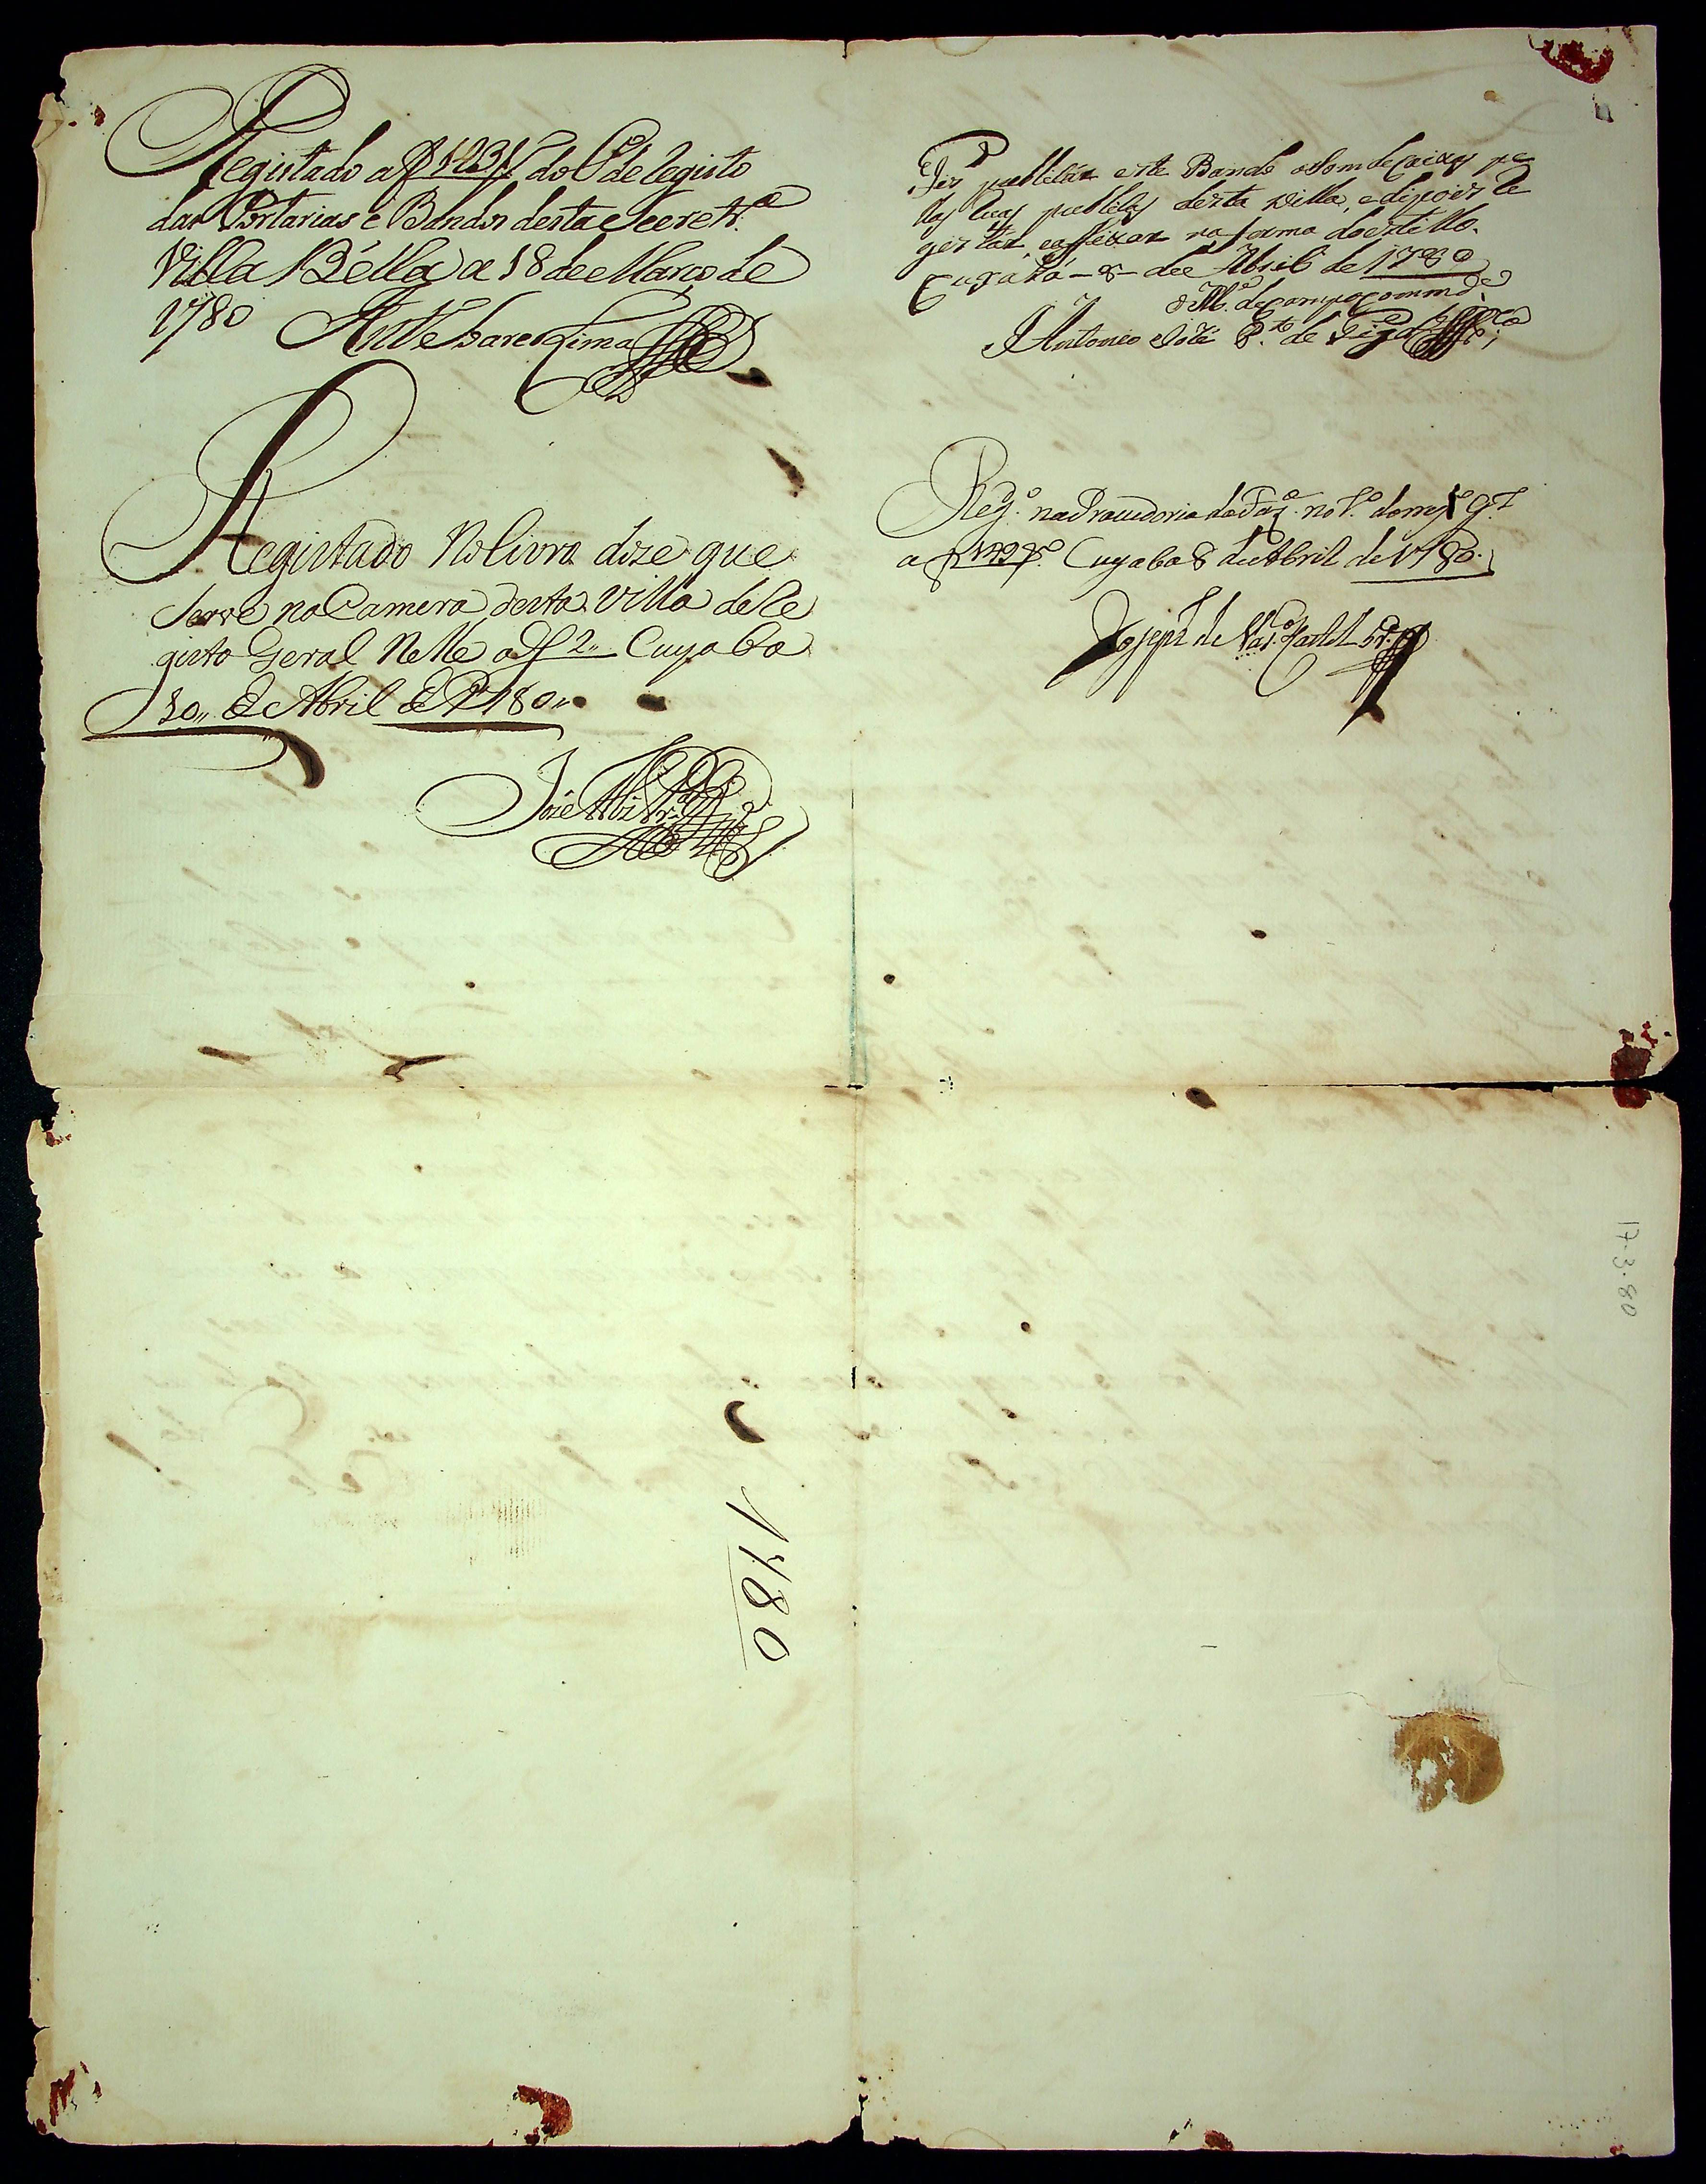 Registado a f 123 V.º do L.º de Registo
das Portarias e Bandos desta Secretr.ª
Villa Bella a 18 de Março de
1780
Registado No livro dise que
serve na Camera desta Villa de Re
gisto Geral Nelle a f 2,, Cuyaba
de Abril de 1780,,
Fis publicár este Bando a som de caixas pe
las ruas publicas desta Villa, e depois Re
gistar, e affixar na forma do estillo.
Cuyabá - 8 - de Abril de 1780
M.e de campo comm.de
Antonio José P.to de
Reg.º na Provedoria da Faz.ª no L.º do reg.º g.l
a f Cuyaba 8 de Abril de 1780.
Joseph de
1780
17-3-80